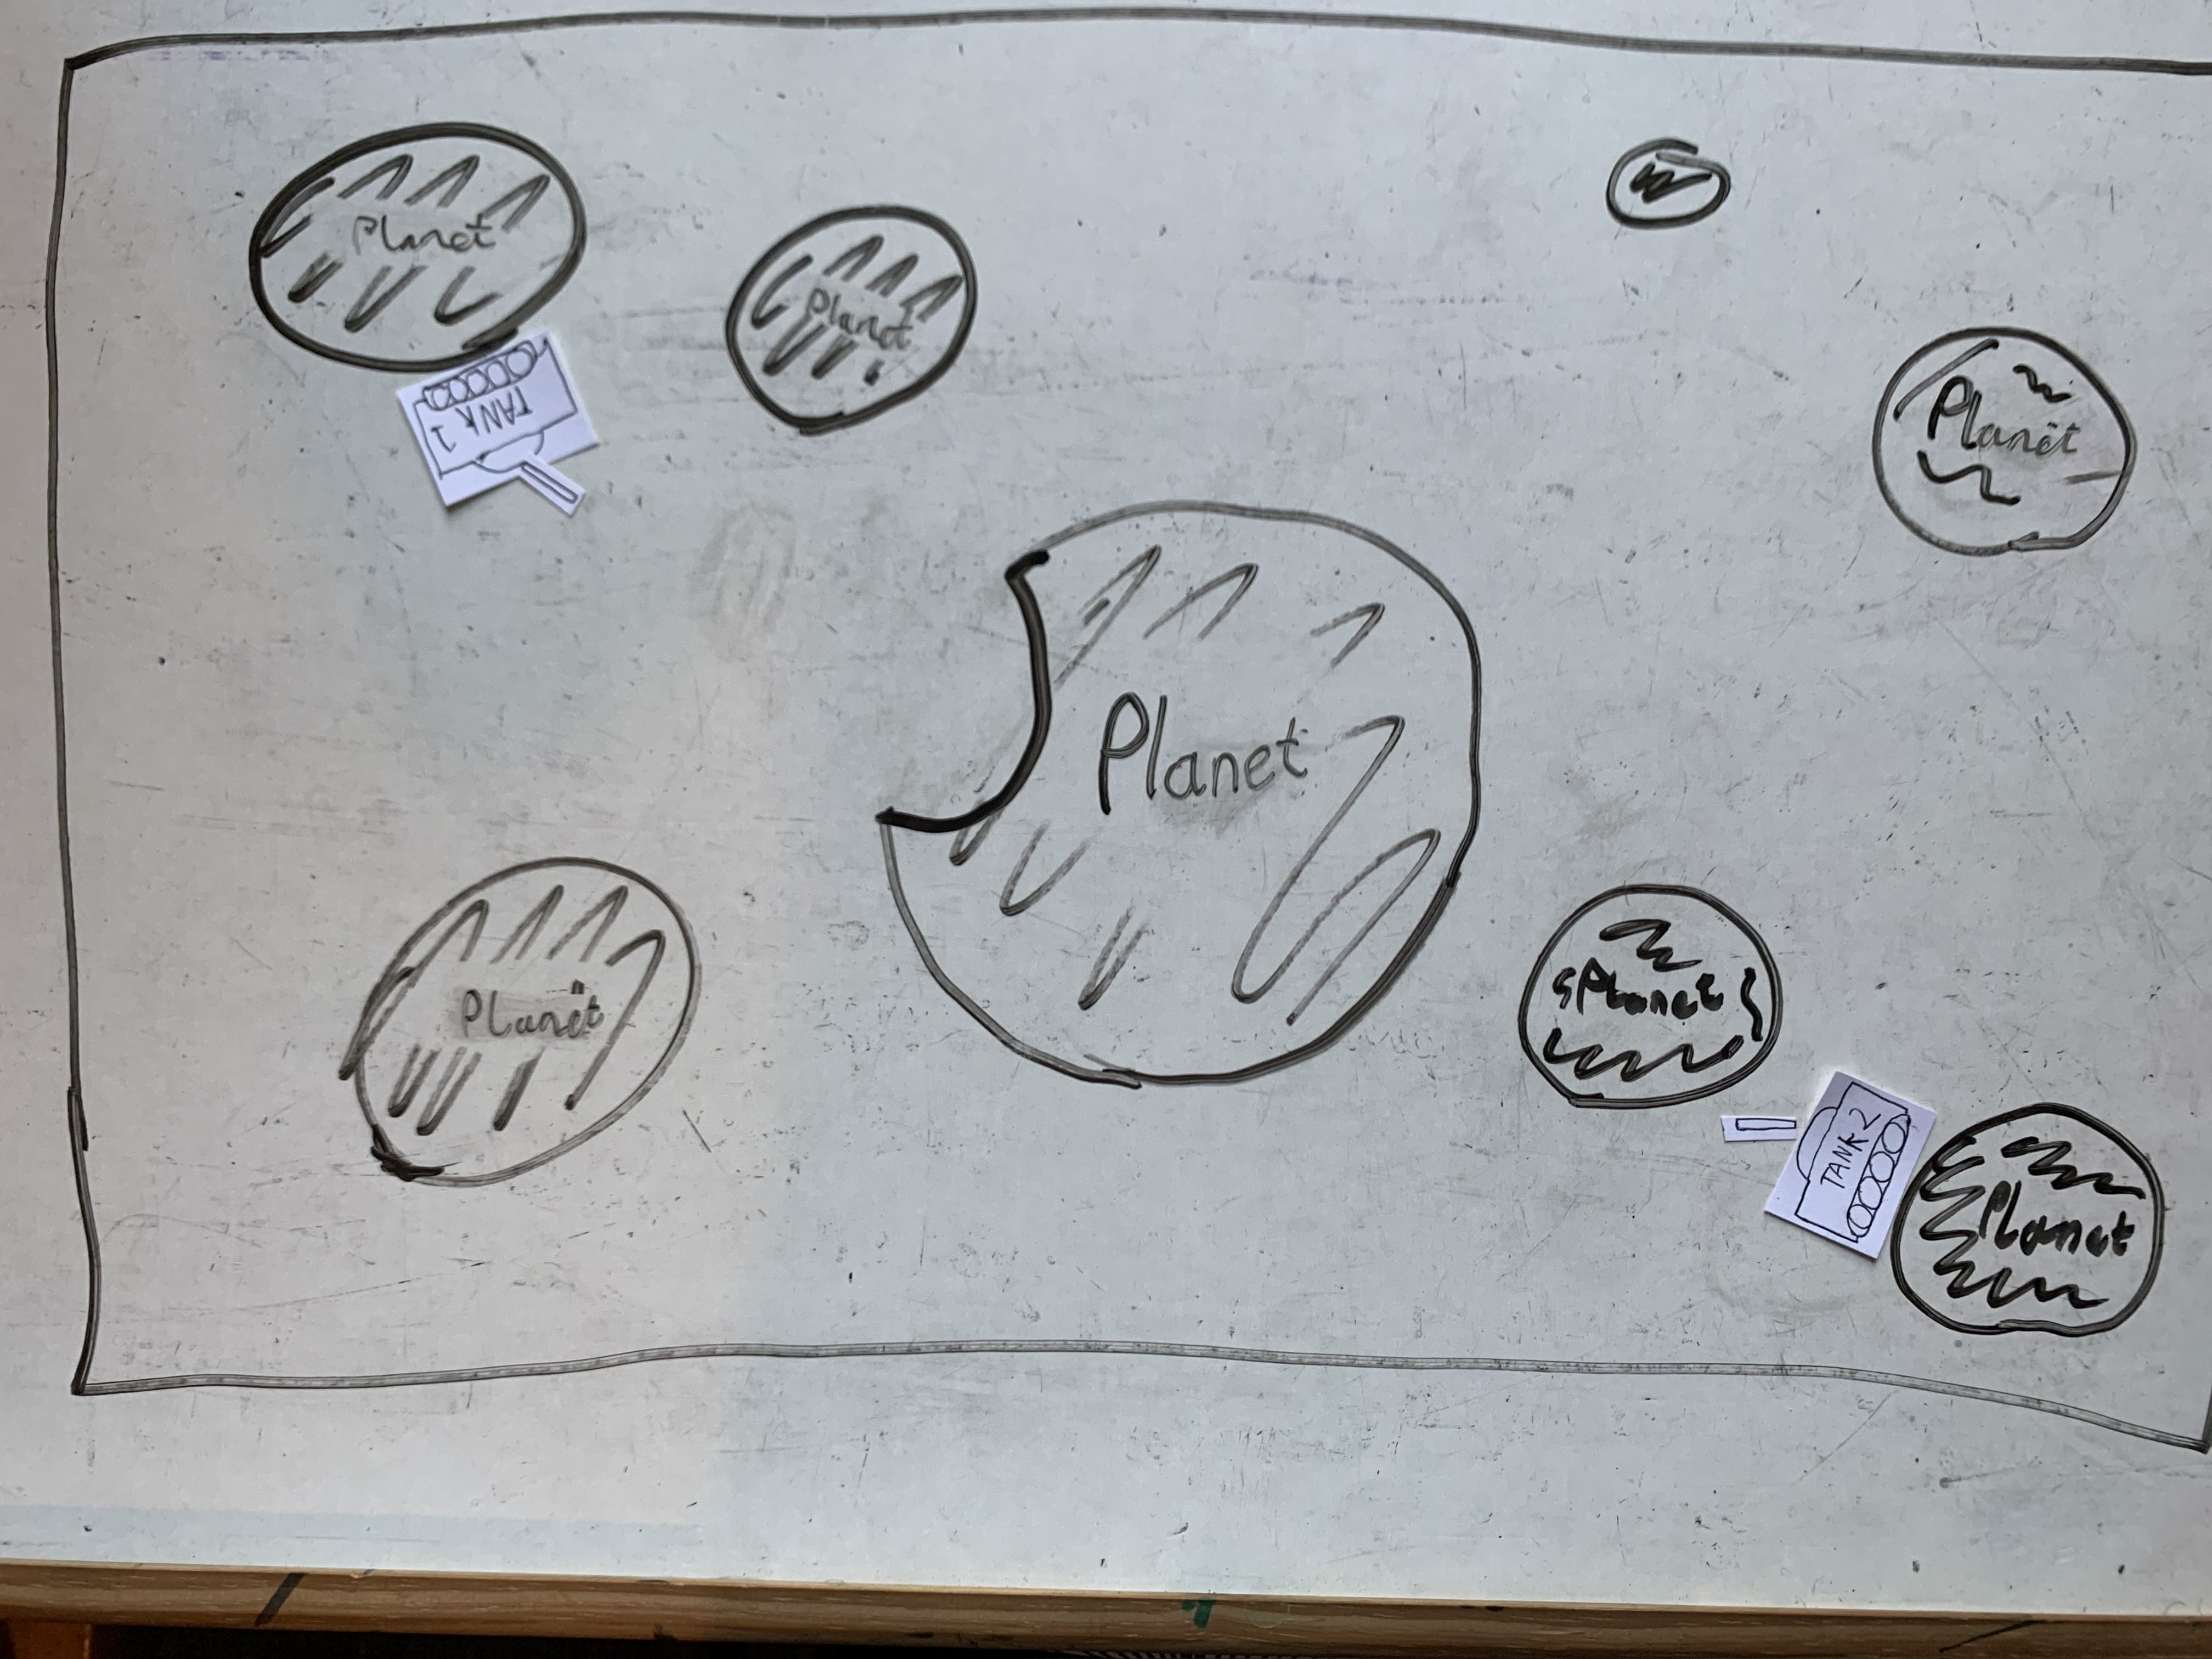 Planet
Planet
Planet
TANK 1
Planet
Planet
Planet
TANK 2
Planet